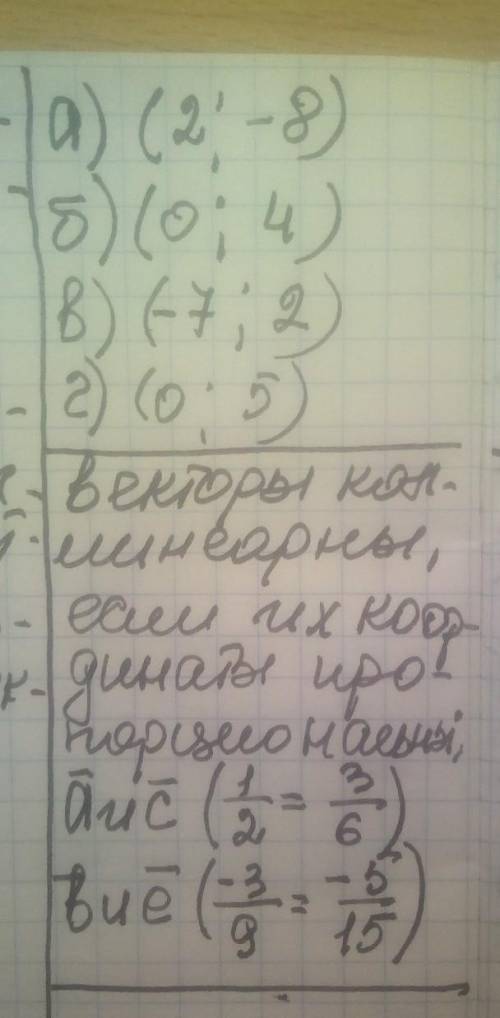 а) (2; -8)
б) (0; 4)
в) (-7; 2)
г) (0; 5)
векторы кол-
линеарны,
если их коор-
динаты про-
порциональны,
a̅ и c̅ (1/2 = 3/6)
b̅ и e̅ (-3/9 = -5/15)